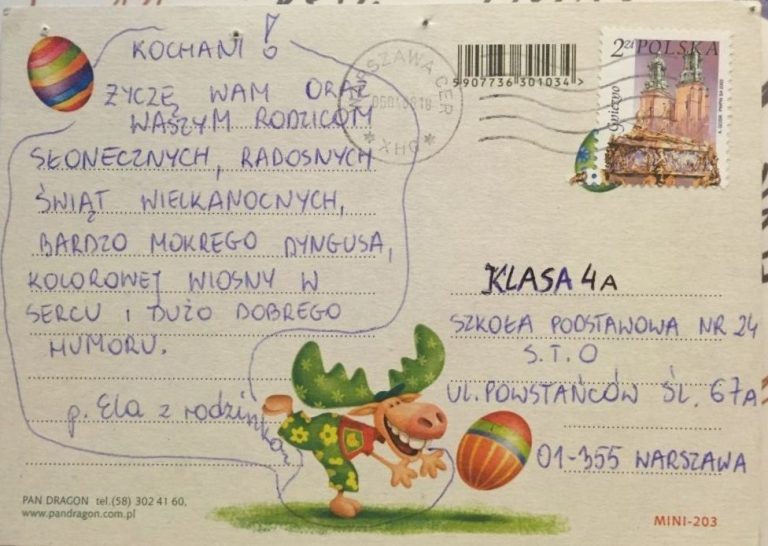 KOCHANI!
ŻYCZĘ WAM ORAZ
WASZYM RODZICOM
SŁONECZNYCH, RADOSNYCH
ŚWIĄT WIELKANOCNYCH,
BARDZO MOKREGO DYNGUSA,
KOLOROWEJ WIOSNY W
SERCU I DUŻO DOBREGO
HUMORU.
p. Ela z rodzinką
PAN DRAGON tel.(58) 302 41 60,
www.pandragon.com.pl
WARSZAWA CER
UHX
5907736301034>
2zł POLSKA
Gniezno
KLASA 4A
SZKOŁA PODSTAWOWA NR 24
S.T.O
UL. POWSTAŃCÓW ŚL. 67A
01-355 WARSZAWA
MINI-203